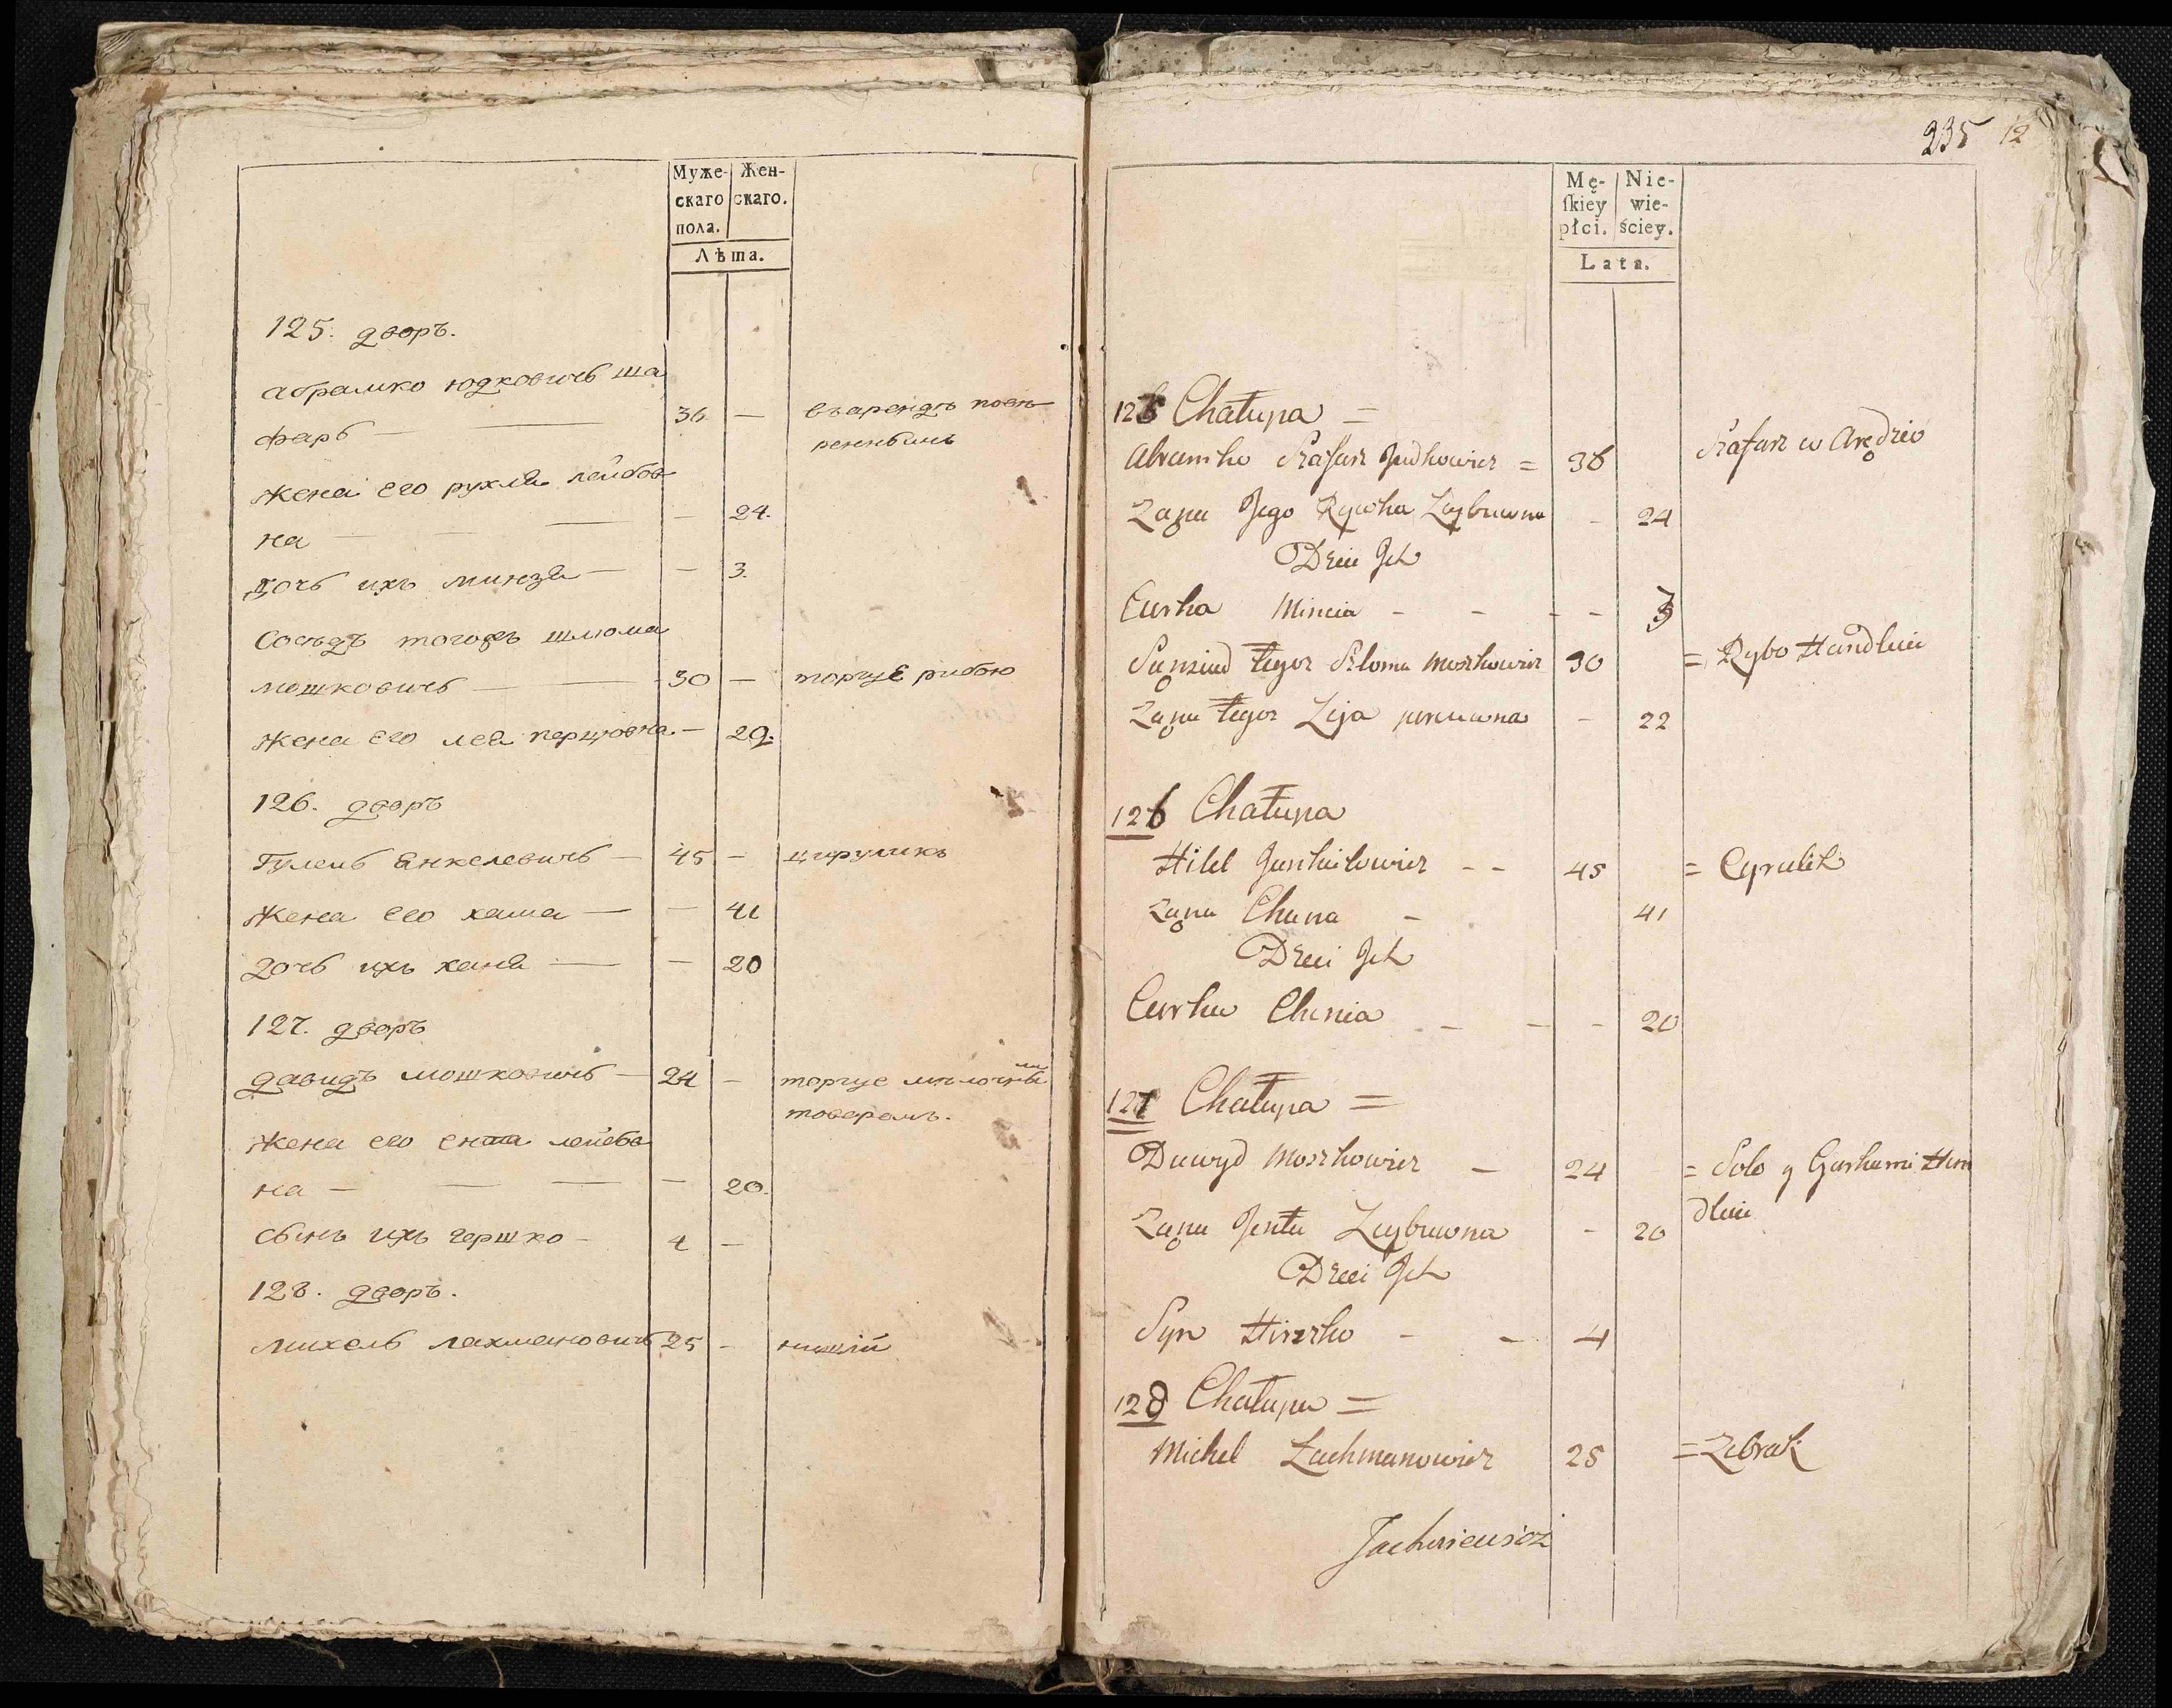 Муже-
скаго
пола.
Жен-
скаго.
Лѣта.
125. дворъ.
абрамко юдковичь ша
фарь — 36 — въ арендѣ повѣ
ренныимъ
жена его рухля лейбов
на — — 24.
дочь ихъ минзя — — 3.
Сосѣдъ тогожъ шлюма
мошковичь — 30 — торгуе рибою
жена его лея перцовна — 29.
126. дворъ
Гулемь Янкелевичь — 45 — цируликъ
жена его хаша — — 41
дочь ихъ ханя — — 20
127. дворъ
давидъ мошковичь — 24 — торгуе мѣлочны
ми
товаромъ.
жена его ента лейбов
на — — 20.
сынъ ихъ гершко — 4 —
128. дворъ.
михель лахмановичь 25 — нищій
235 12
Mę-
ſkiey
płci.
Nie-
wie-
ściey.
Lata.
125 Chałupa =
Abramko Szafarz Judkowicz = 36 Szafarz w Arędzie
Zona Jego Rywka Leybowna - 24
Dzieci Jch
Curka Mincia - - - - 3
Sąnsiad tegoż Szloma Moszkowicz 30 = Rybo Handluie
Zona tegoż Leja percowna - 22
126 Chałupa
Hilel Jankielowicz - - 45 = Cyrulik
Zona Chana - 41
Dzieci Jch
Curka Chenia - - - 20
127 Chałupa =
Dawyd Moszkowicz — 24 = Solo y Garkami Han
dluie
Zona Jenta Leybowna - 20
Dzieci Jch
Syn Hirszko - - 4
128 Chałupa =
Michel Lachmanowicz 25 = Zebrak